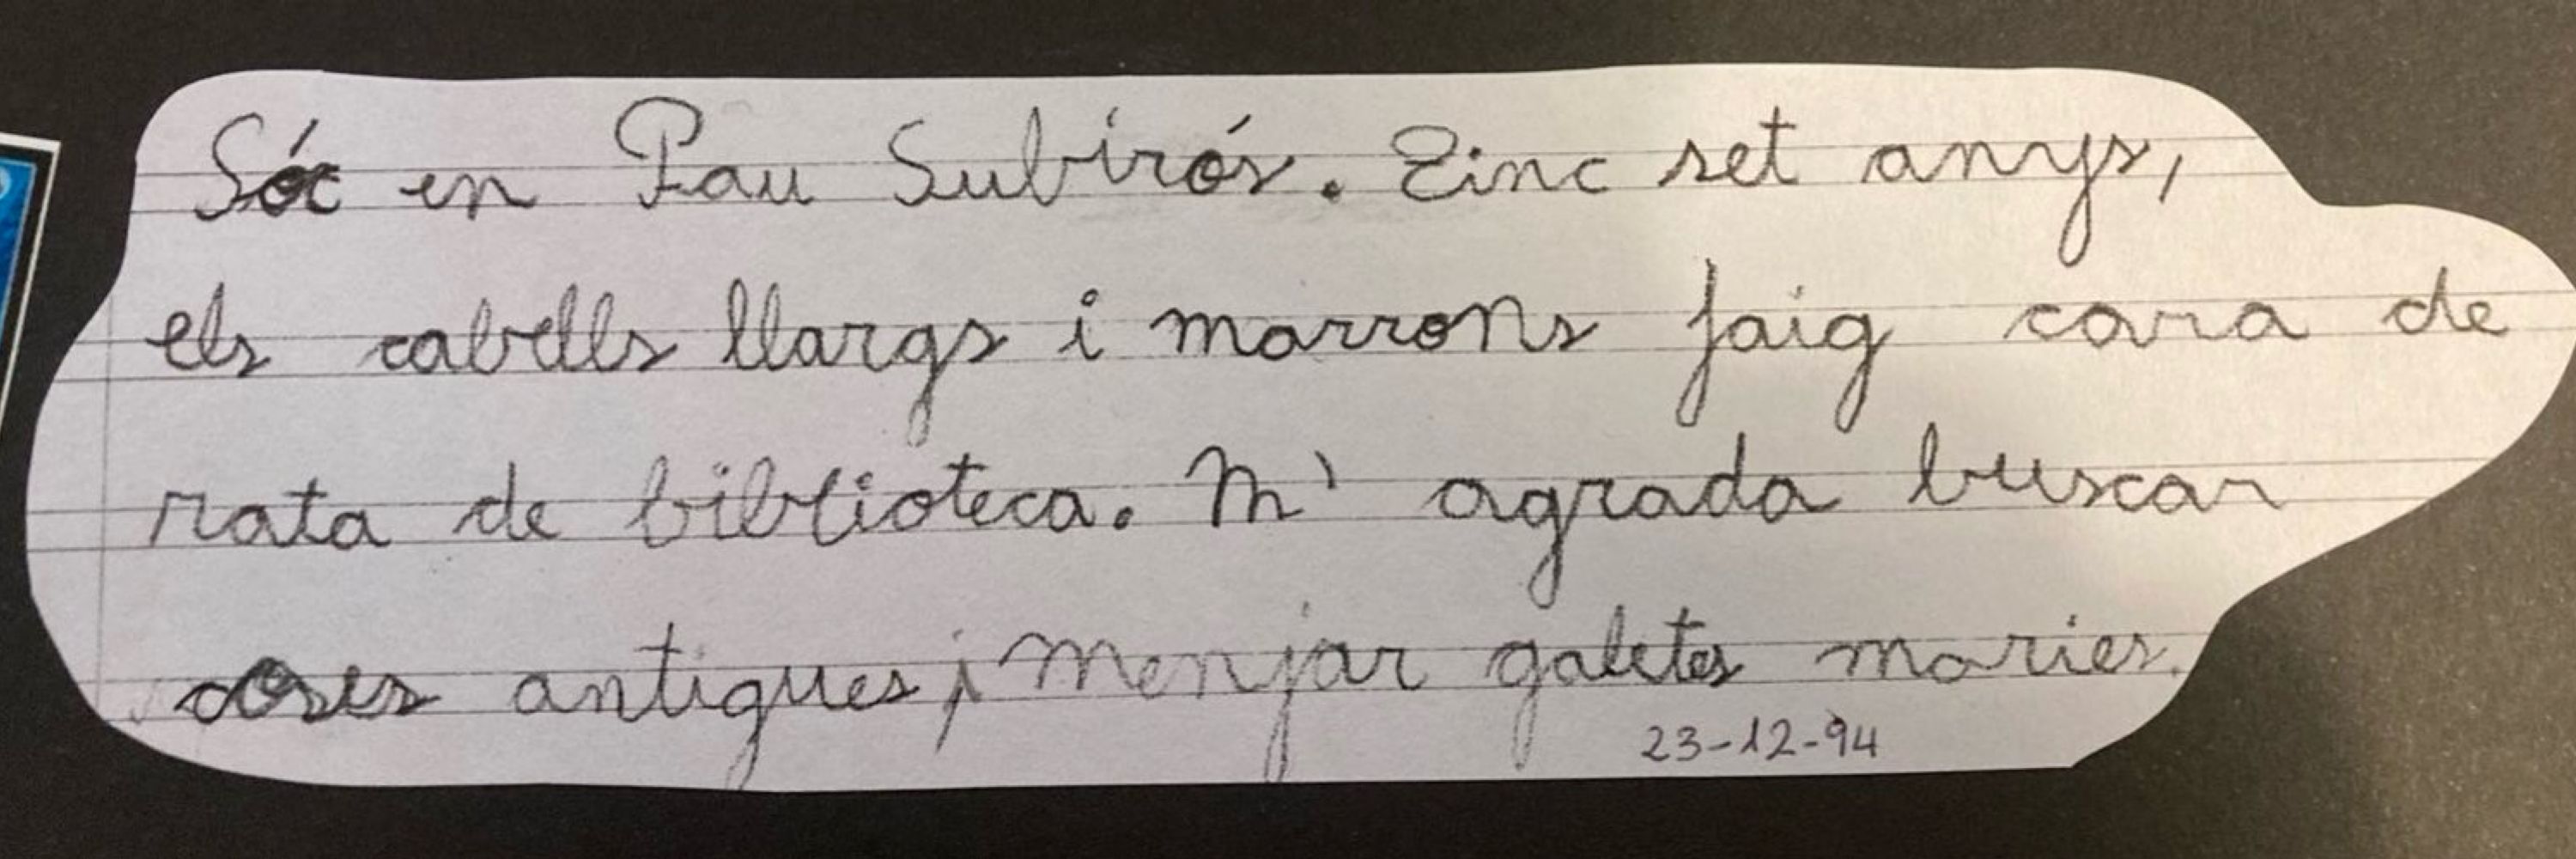 Sóc en Pau Subirós. Tinc set anys,
els cabells llargs i marrons faig cara de
rata de biblioteca. M' agrada buscar
coses antigues i menjar galetes maries.
23-12-94